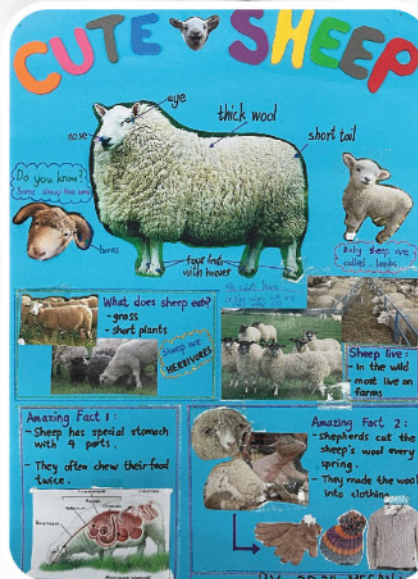 CUTE SHEEP
eye
thick wool
nose
short tail
Do you know?
Some sheep have horns
horns
four feet
with hooves
Baby sheep are
called lambs
What does sheep eat?
- grass
- short plants
Sheep are
HERBIVORES
Sheep live:
- In the wild
- most live on
farms
Amazing Fact 1:
- Sheep has special stomach
with 4 parts.
- They often chew their food
twice.
Amazing Fact 2:
- shepherds cut the
sheep's wool every
spring.
- They made the wool
into clothing.